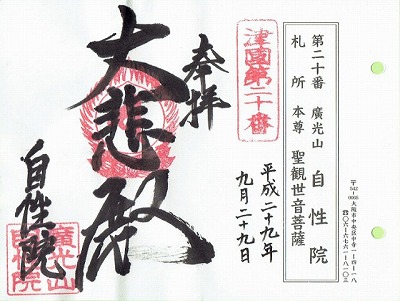 第二十番 廣光山 自性院
札所 本尊 聖観世音菩薩
〒542-0065 大阪市中央区中寺一-四-一八
☎〇六-六七六一-八一〇三
津國第二十番
奉拝
平成二十九年
九月二十九日
大悲殿
自性院
廣光山
自性院